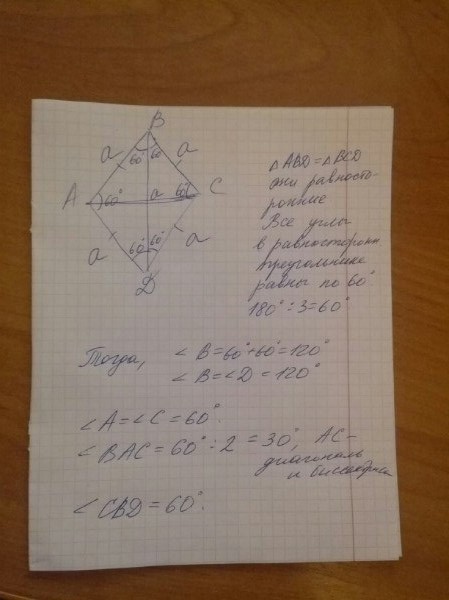 B
a
60° 60
a
A
60°
a
60°
C
a
60° 60°
a
D
△ ABD = △ BCD
они равносто-
ронние
Все углы
в равносторонн
треугольнике
равны по 60°
180° ÷ 3 = 60°
Тогда, ∠ B = 60° + 60° = 120°
∠ B = ∠ D = 120°
∠ A = ∠ C = 60°.
∠ BAC = 60° ÷ 2 = 30°, AC -
диагональ
и биссектриса
∠ CBD = 60°.